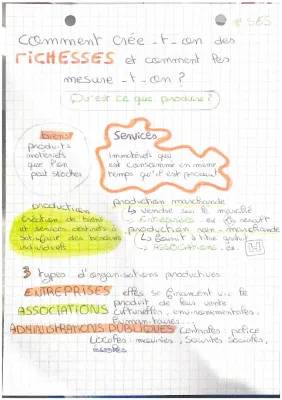 # SES
Comment crée-t-on des
RICHESSES et comment les
mesure-t-on ?
Qu'est ce que produire ?
biens
produits
matériels
que l'on
peut stocker
Services
Immatériels qui
est consommé en même
temps qu'il est produit
production
Création de biens
et services destinés à
satisfaire des besoins
individuels
production marchande
↳ vendre sur le marché
↳ ENTREPRISES ex
production non-marchande
↳ fournit à titre gratuit
↳ ASSOCIATIONS ex: H
3 types d'organisations productives
ENTREPRISES elles se financent via le
produit de leur vente
ASSOCIATIONS culturelles, environnementales,
humanitaires...
ADMINISTRATIONS PUBLIQUES Centrales: police
Locales: mairies, Sécurités sociales,